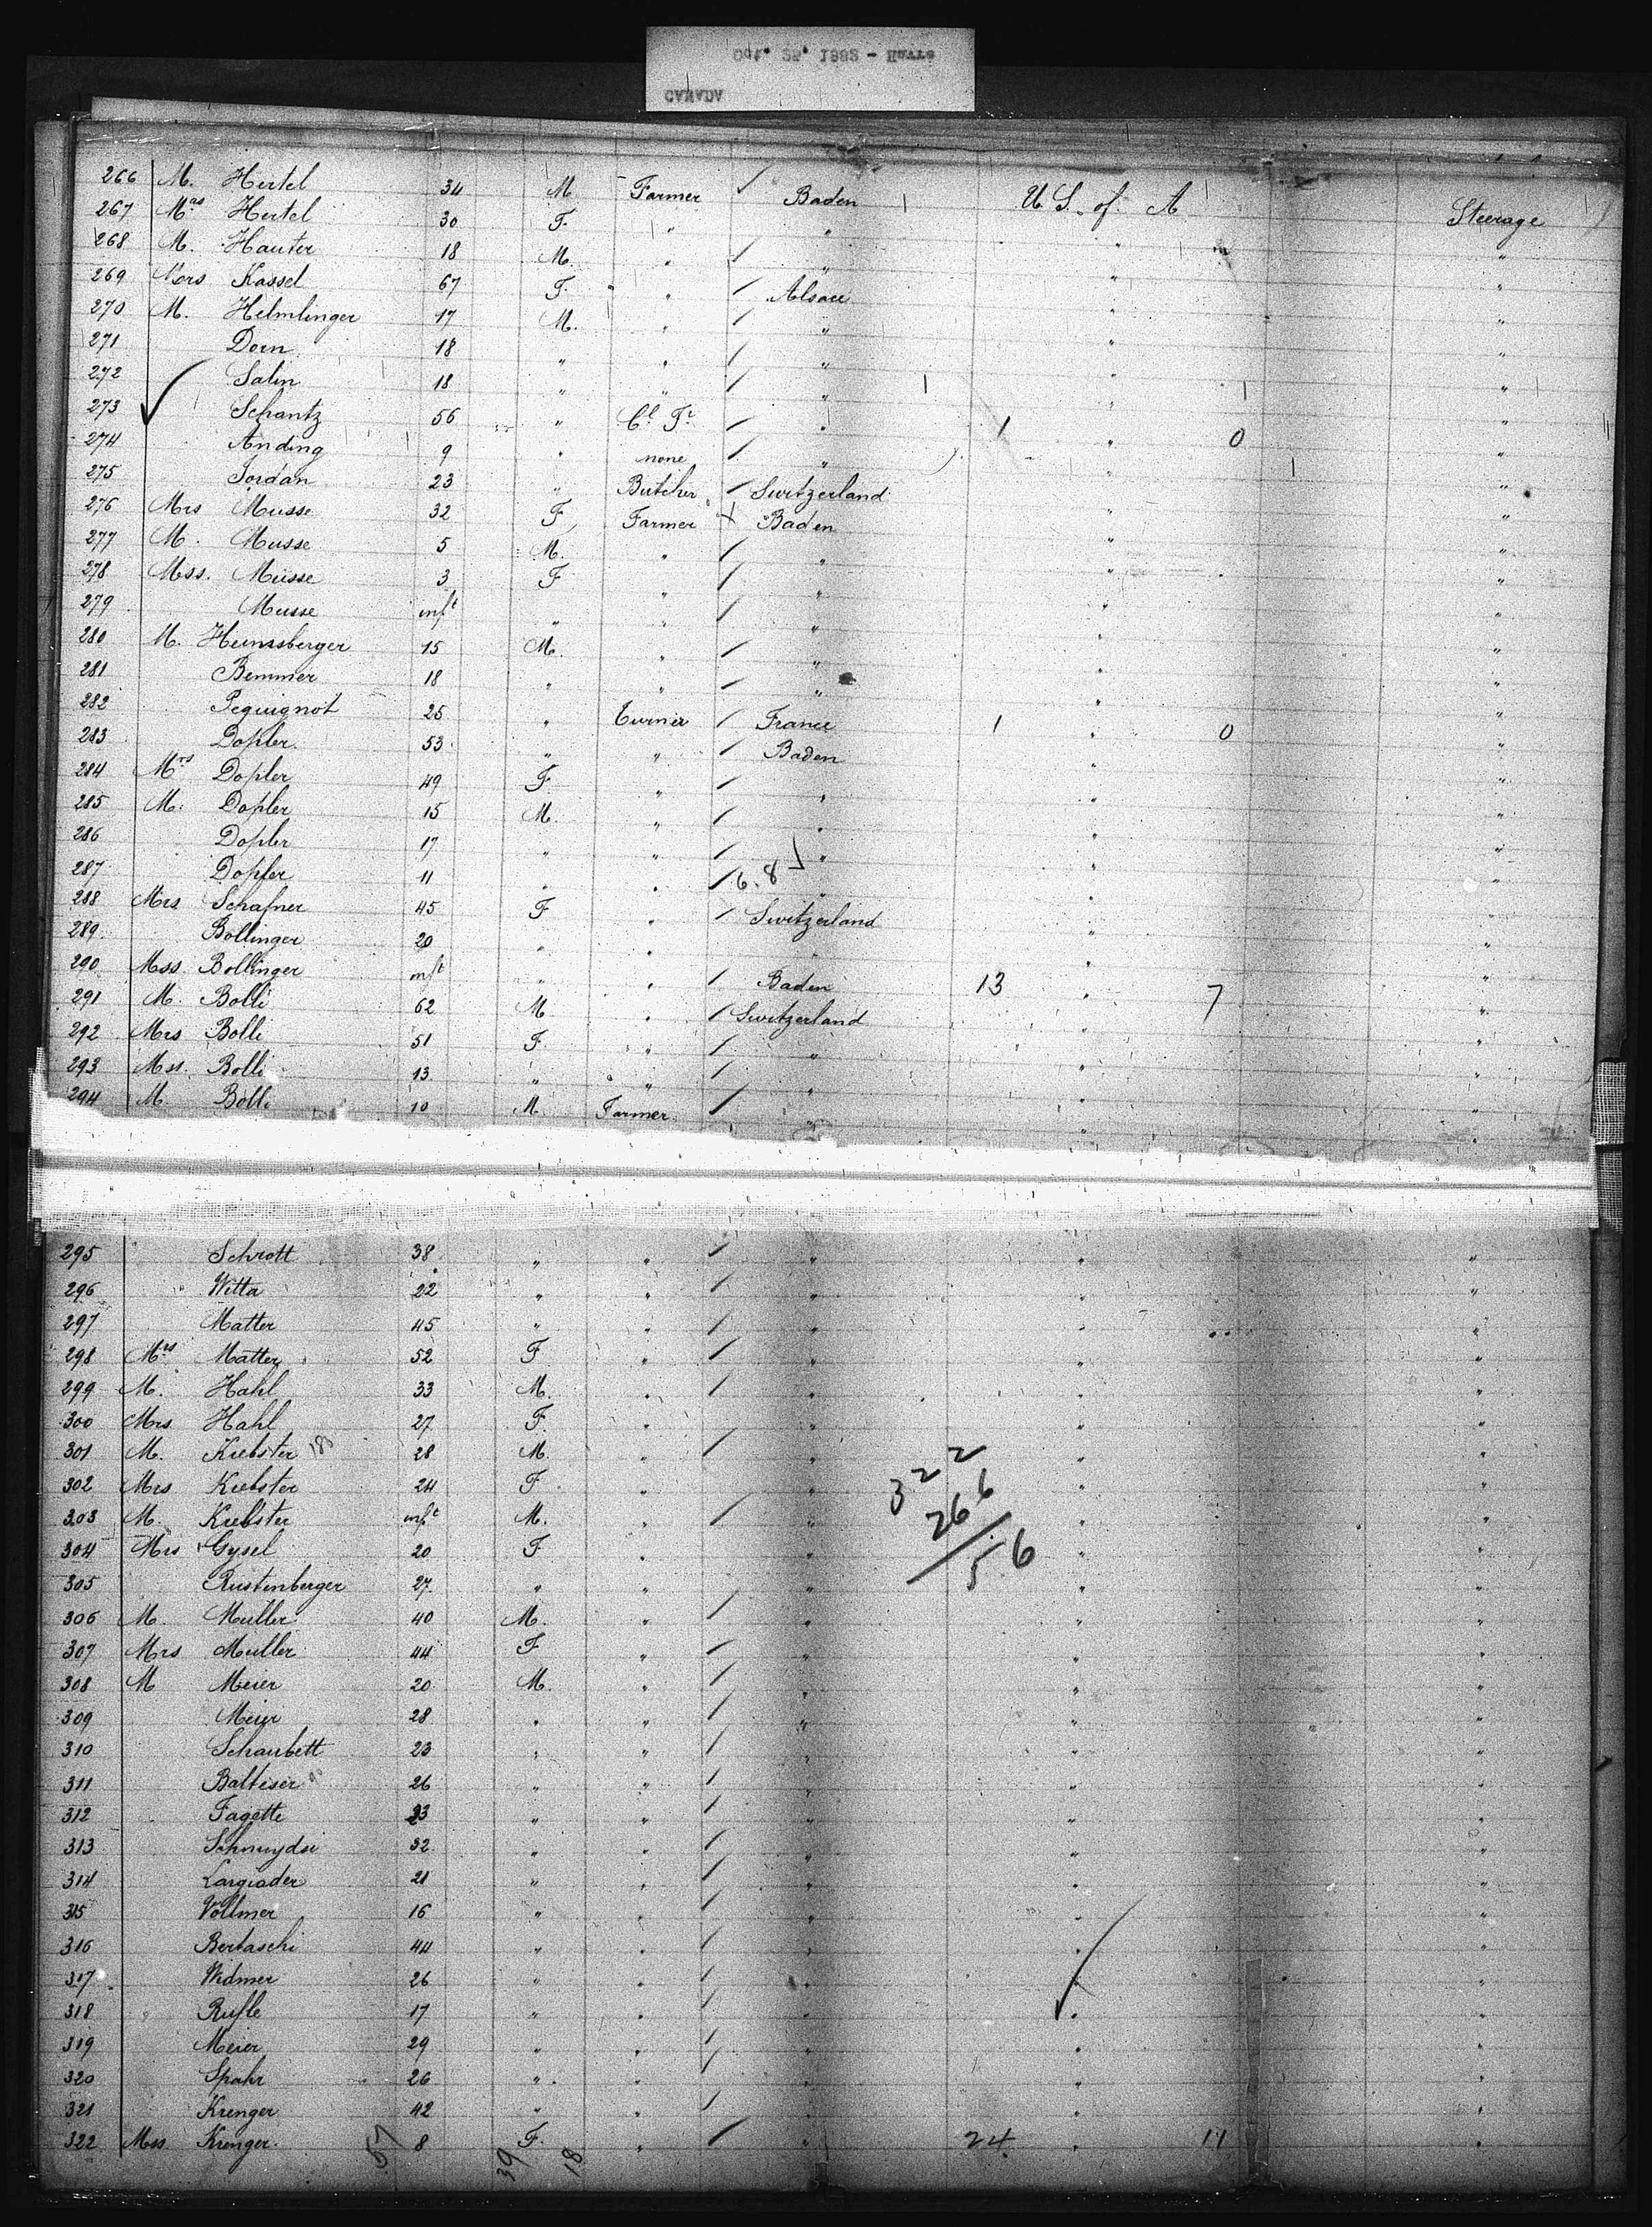 CANADA
266 M. Hertel 34 M Farmer Baden U. S. of A Steerage
267 Mrs Hertel 30 F. " " " "
268 M. Hauter 18 M. " " " "
269 Mers Kassel 67 F. " Alsace " "
270 M. Helmlinger 17 M. " " " "
271 Dorn 18 " " " " "
272 Salin 18 " " " " "
273 Schantz 56 " Cl. Fr. " 1 " 0 "
274 Anding 9 " none " " "
275 Jordan 23 " Butcher Switzerland " "
276 Mrs Musse 32 F Farmer Baden " "
277 M. Musse 5 M. " " " "
278 Mss. Musse 3 F " " " "
279 Musse inft " " " " "
280 M. Hunssberger 15 M. " " " "
281 Bemmer 18 " " " " "
282 Pequignot 25 " Turner France 1 " 0 "
283 Dopler 53 " " Baden " "
284 Mrs Dopler 49 F. " " " "
285 M. Dopler 15 M. " " " "
286 Dopler 17 " " " " "
287 Dopler 11 " " 6. 8 " " "
288 Mrs Schafner 45 F " Switzerland " "
289 Bollinger 20 " " " "
290 Mss. Bollinger inft " " Baden 13 " 7 "
291 M. Bolli 62 M " Switzerland " "
292 Mrs Bolli 51 F. " " " "
293 Mss. Bolli 13 " " " " "
294 M Bolli 10 M. Farmer " " "
295 Schrott 38 " " " " "
296 Witta 22 " " " " "
297 Matter 45 " " " " "
298 Mrs Matter 52 F " " " "
299 M. Hahl 33 M. " " " "
300 Mrs Hahl 27 F. " " " "
301 M. Kiebster 28 M. " " 322 " "
302 Mrs Kiebster 24 F " " 266 " "
303 M. Kiebster inft M. " " " "
304 Mrs Gysel 20 F " " 56 " "
305 Rustenberger 27 " " " " "
306 M. Muller 40 M. " " " "
307 Mrs Muller 44 F " " " "
308 M Meier 20 M. " " " "
309 Meier 28 " " " " "
310 Schaubett 23 " " " " "
311 Balteser 26 " " " " "
312 Fagette 23 " " " " "
313 Schnuyder 32 " " " " "
314 Largiader 21 " " " " "
315 Vollmer 16 " " " " "
316 Bertaschi 44 " " " " "
317 Widmer 26 " " " " "
318 Rufle 17 " " " " "
319 Meier 29 " " " " "
320 Spahr 26 " " " " "
321 Krenger 42 " " " " "
322 Mss. Krenger 8 F. " " 24 " 11 "
57 39 18